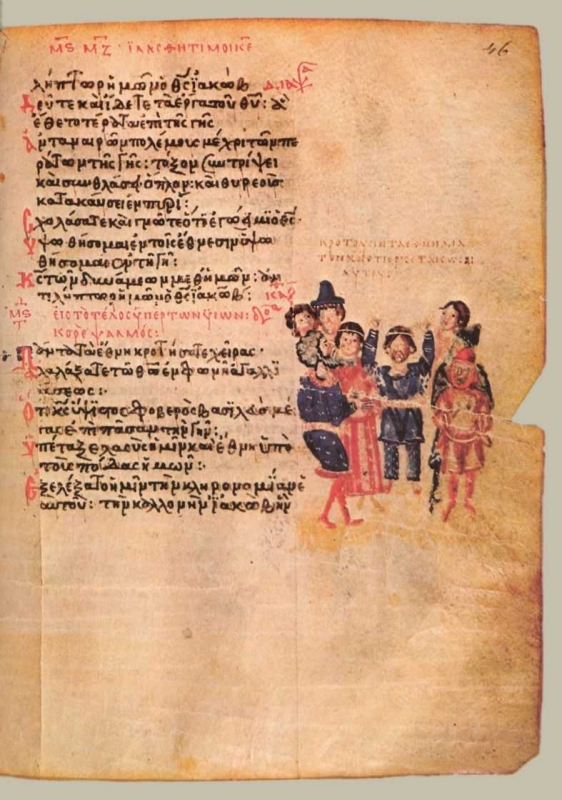 Μ̅Ϛ̅ Μ̅Ζ̅ · ΙΛΑΣΘΗΤΙ ΜΟΙ ΚΕ
46
λήπτωρ ἡμῶν ὁ θ̅ς̅ ἰακώβ
Δεῦτε καὶ ἴδετε τὰ ἔργα τοῦ θ̅υ̅: ἃ
ἔθετο τέρατα ἐπὶ τῆς γῆς
Ἀνταναιρῶν πολέμους μέχρι τῶν πε
ράτων τῆς γῆς: τόξον συντρίψει
καὶ συνθλάσει ὅπλον: καὶ θυρεοὺς
κατακαύσει ἐν πυρί:
Σχολάσατε καὶ γνῶτε ὅτι ἐγώ εἰμι ὁ θ̅ς̅·
Ὑψωθήσομαι ἐν τοῖς ἔθνεσιν ὑψω
θήσομαι ἐν τῇ γῇ:
Κ̅ς̅ τῶν δυνάμεων μεθ' ἡμῶν: ἀν
τιλήπτωρ ἡμῶν ὁ θ̅ς̅ ἰακώβ:
Μ̅Ϛ̅ ΕΙΣ ΤΟ ΤΕΛΟΣ ΥΠΕΡ ΤΩΝ ΥΙΩΝ:
ΚΟΡΕ ΨΑΛΜΟΣ:
Πάντα τὰ ἔθνη κροτήσατε χεῖρας·
ἀλαλάξατε τῷ θ̅ω̅ ἐν φωνῇ ἀγαλλι
άσεως:
Ὅτι κ̅ς̅ ὕψιστος φοβερὸς βασιλεὺς μέ
γας ἐπὶ πᾶσαν τὴν γῆν:
Ὑπέταξε λαοὺς ἡμῖν καὶ ἔθνη ὑπὸ
τοὺς πόδας ἡμῶν:
Ἐξελέξατο ἡμῖν τὴν κληρονομίαν
αὐτοῦ: τὴν καλλονὴν ἰακὼβ ἣν